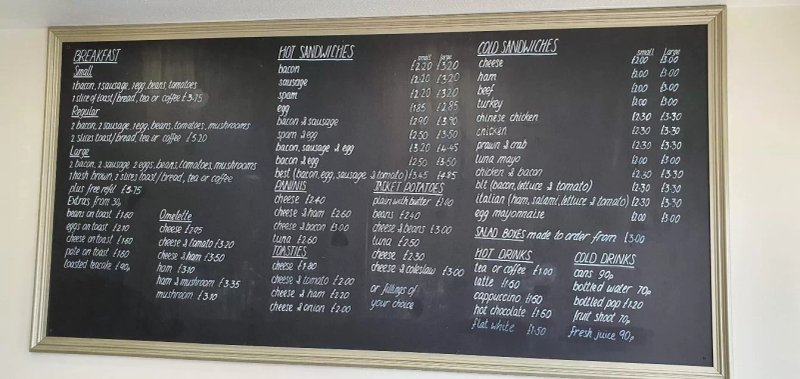 BREAKFAST
Small
1 bacon, 1 sausage, 1 egg, beans, tomatoes
1 slice of toast/bread, tea or coffee £3.75
Regular
2 bacon, 2 sausage, 1 egg, beans, tomatoes, mushrooms
2 slices toast/bread, tea or coffee £5.20
Large
2 bacon, 2 sausage 2 eggs, beans, tomatoes, mushrooms
1 hash brown, 2 slices toast/bread, tea or coffee
plus free refil
Extras from 30p
beans on toast £1.60
eggs on toast £2.10
cheese on toast £1.60
pate on toast £1.60
toasted teacake 90p
Omelette
cheese
cheese & tomato £3.20
cheese & ham £3.50
ham £3.10
ham & mushroom £3.35
mushroom £3.10
HOT SANDWICHES
small large
bacon £2.20 £3.20
sausage £2.20 £3.20
spam £2.20 £3.20
egg £1.85 £2.85
bacon & sausage £2.90 £3.90
spam & egg £2.50 £3.50
bacon, sausage & egg £3.20 £4.45
bacon & egg £2.50 £3.50
best (bacon, egg, sausage & tomato) £3.45 £4.85
PANINIS
cheese £2.40
cheese & ham £2.60
cheese & bacon £3.00
tuna £2.60
TOASTIES
cheese £1.80
cheese & tomato £2.00
cheese & ham £2.20
cheese & onion £2.00
JACKET POTATOES
plain with butter
beans £2.40
cheese & beans £3.00
tuna £2.50
cheese £2.30
cheese & coleslaw £3.00
or fillings of
your choice
COLD SANDWICHES
small large
cheese £2.00 £3.00
ham £2.00 £3.00
beef £2.00 £3.00
turkey £2.00 £3.00
chinese chicken £2.30 £3.30
chicken £2.30 £3.30
prawn & crab £2.30 £3.30
tuna mayo £2.00 £3.00
chicken & bacon £2.30 £3.30
blt (bacon, lettuce & tomato) £2.30 £3.30
italian (ham, salami, lettuce & tomato) £2.30 £3.30
egg mayonnaise £2.00 £3.00
SALAD BOXES made to order from £3.00
HOT DRINKS
tea or coffee £1.00
latte £1.60
cappuccino £1.60
hot chocolate £1.60
flat white £1.50
COLD DRINKS
cans 90p
bottled water 70p
bottled pop £1.20
fruit shoot 70p
fresh juice 90p